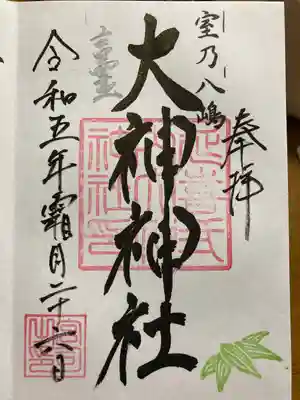 奉拝
室乃八嶋
大神神社
言霊
令和五年霜月二十六日